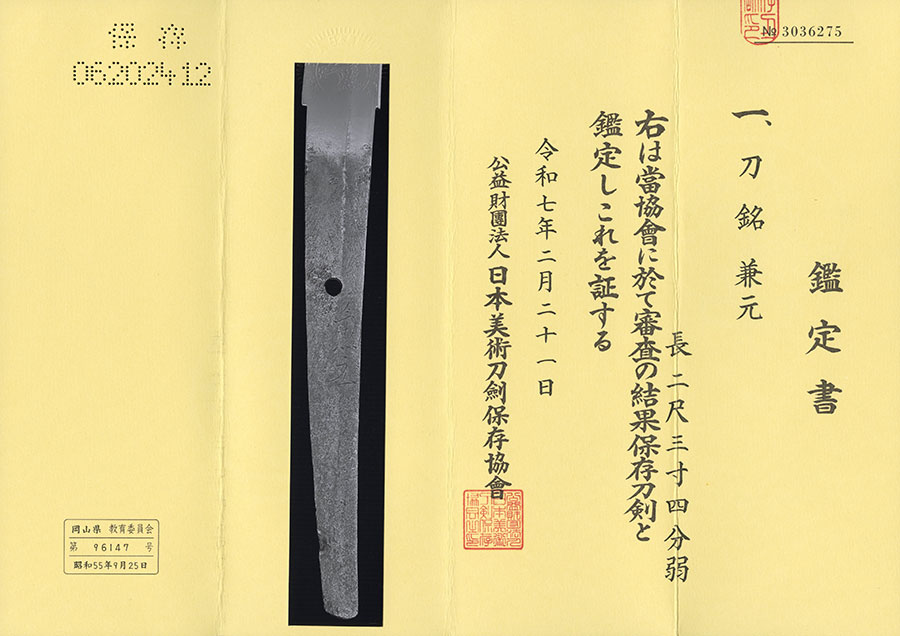 № 3036275
鑑定書
一、刀 銘 兼元
長二尺三寸四分弱
右は當協會に於て審査の結果保存刀剣と
鑑定しこれを証する
令和七年二月二十一日
公益財團法人 日本美術刀劍保存協會
保存
06202412
岡山県 教育委員会
第 96147 号
昭和55年9月25日